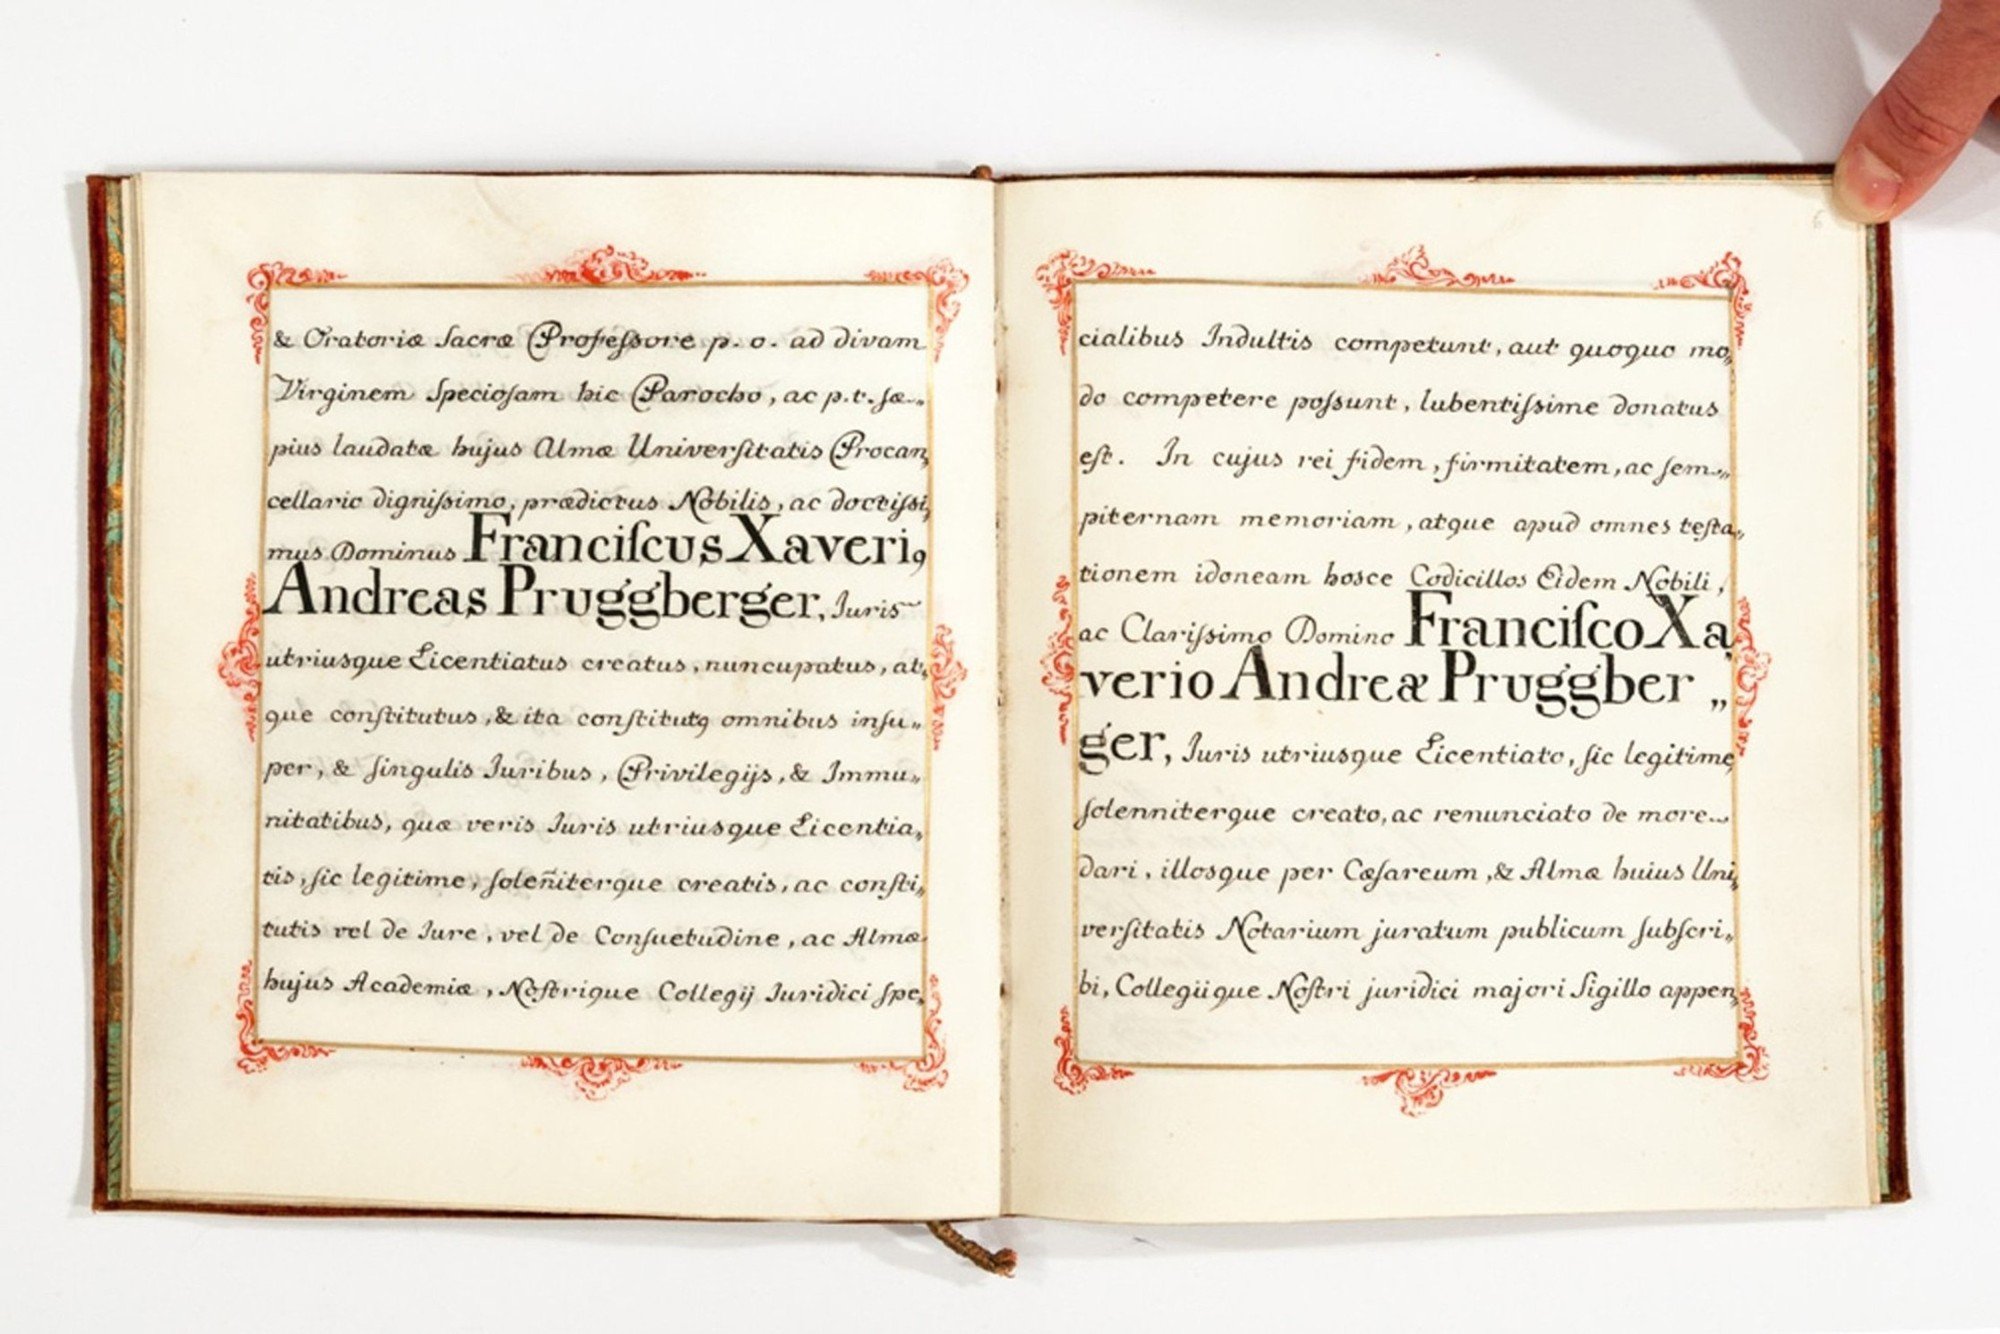 & Oratoriæ Sacræ Profeſsore p. o. ad divam
Virginem Specioſam hic Parocho, ac p. t. ſæ„
pius laudatæ hujus Almæ Universitatis Procan„
cellario digniſsimo, prædictus Nobilis, ac doctiſsi„
mus Dominus Franciſcus Xaveriꝰ
Andreas Pruggberger, Iuris
utriusque Licentiatus creatus, nuncupatus, at„
que conſtitutus, & ita conſtitutꝰ omnibus inſu„
per, & ſingulis Iuribus, Privilegijs, & Immu„
nitatibus, quæ veris Iuris utriusque Licentia„
tis, ſic legitime, ſoleñiterque creatis, ac conſti„
tutis vel de Iure, vel de Conſuetudine, ac Almæ
hujus Academiæ, Noſtrique Collegij Iuridici ſpe„
6
cialibus Indultis competunt, aut quoquo mo„
do competere poſsunt, lubentiſsime donatus
eſt. In cujus rei fidem, firmitatem, ac ſem„
piternam memoriam, atque apud omnes teſta„
tionem idoneam hosce Codicillos Eidem Nobili,
ac Clariſsimo Domino Franciſco Xa„
verio Andreæ Pruggber„
ger, Iuris utriusque Licentiato, ſic legitime,
ſolenniterque creato, ac renunciato de more
dari, illosque per Cæſareum, & Almæ huius Uni„
verſitatis Notarium juratum publicum ſubſcri„
bi, Collegiique Noſtri juridici majori Sigillo appen„